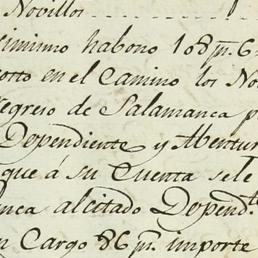 Novillos
simismo habono 108 p.s 6
porto en el Camino los No
regreso de Salamanca p
Dependiente y Abentur
que á su Cuenta sele
nca alcitado Dopend.te
n Cargo 86 p.s importe